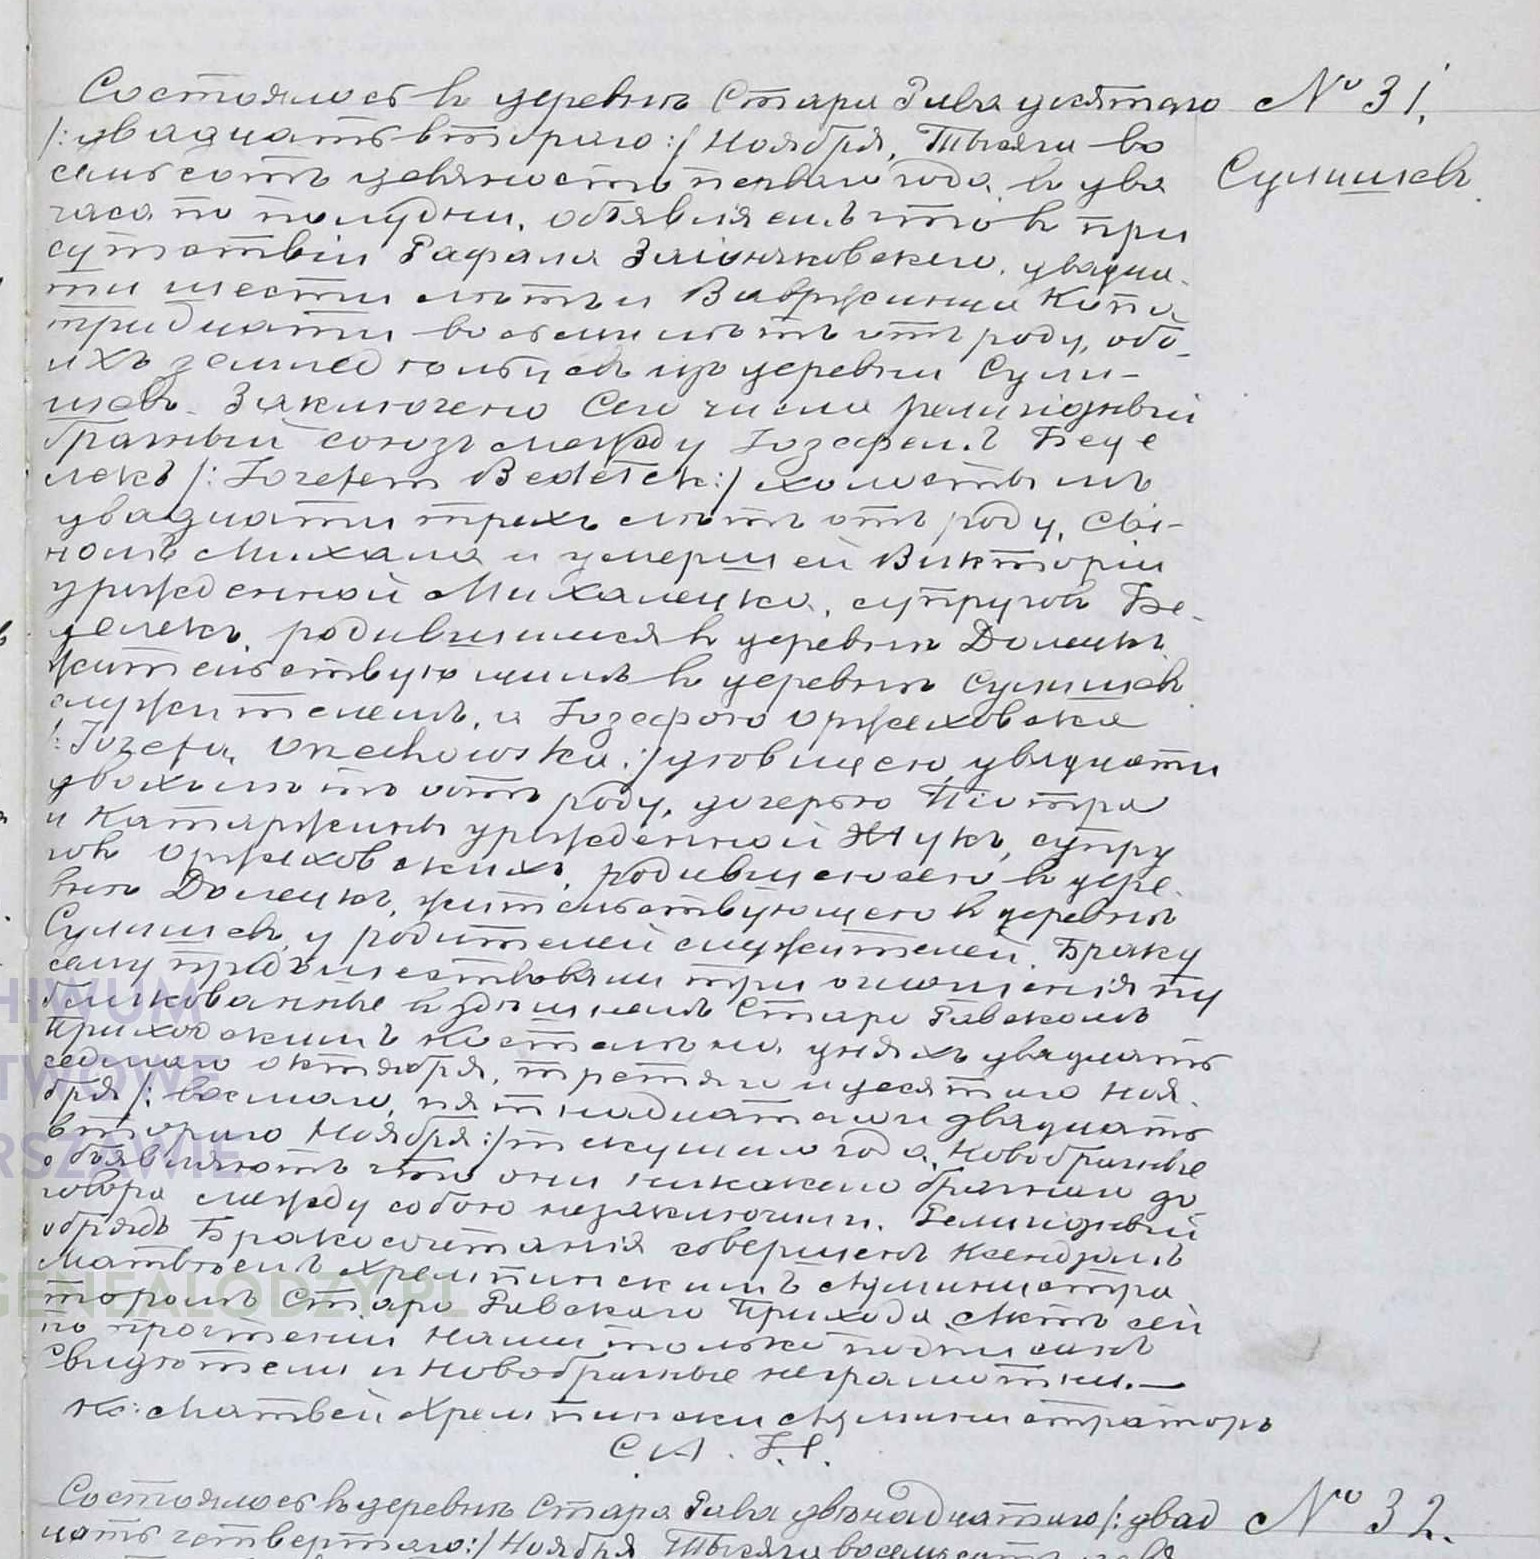 Состоялось в деревнѣ Стара Рава десятаго
/: двадцать втораго :/ Ноября, Тысяча во
семьсотъ девяностъ перваго года, в два
часа по полудни. Объявляемъ что в при
сутствіи Рафала, двадца-
ти шести лѣтъ и Вавржинца Копа
тридцати восьми лѣтъ отъ роду, обо-
ихъ земледѣльцевъ изъ деревни Сули-
шев. Заключено сего числа религіозный
брачный союзъ между Іозефемъ Беде
лекъ /: Jozefem Bedełek :/ холостымъ
двадцати трехъ лѣтъ отъ роду, сы-
номъ Михала и умершей Викторіи
урожденной Михалецка, супруговъ Бе-
делекъ, родившимся в деревнѣ Долецкъ
жительствующимъ в деревнѣ Сулишев
служителемъ, и Іозефою Оржеховска
/: Józefą Orzechowską :/ девицею, двадцати
двохъ лѣтъ отъ роду, дочерью Піотра
и Катаржины урожденной Жукъ, супру
гов Оржеховскихъ, родившеюсею в дере-
внѣ Долецкъ, жительствующею в деревнѣ
Сулишев, у родителей служителей. Браку
сему предъшествовали три оглошенія пу
бликованные в здѣшнемъ Старо Равскомъ
Приходскимъ Костелѣ на дняхъ двадцать
седмаго Октября, третяго и десятаго Ноя-
бря /: восмаго, пятнадцатаго и двадцать
втораго Ноября :/ текущаго года. Новобрачные
объявляютъ что они никакаго брачнаго до-
говора между собою незаключили. Религіозный
обрядъ Бракосочетанія совершенъ Ксендзомъ
Матвѣемъ Хремпинскимъ Администра
торомъ Старо Равскаго Прихода. Актъ сей
по прочтеніи Нами только подписанъ
свидѣтели и новобрачные неграмотны.—
Кс: Матвей Хремпински Администраторъ
С. А. Г. С.
№ 31.
Сулишев.
Состоялось в деревнѣ Стара Рава двѣнадцатаго /: двад
цать четвертаго :/ Ноября, Тысяча восемьсотъ девя
№ 32.
HIWUM
TWOWE
RSZAWIE
GENEALODZY.PL